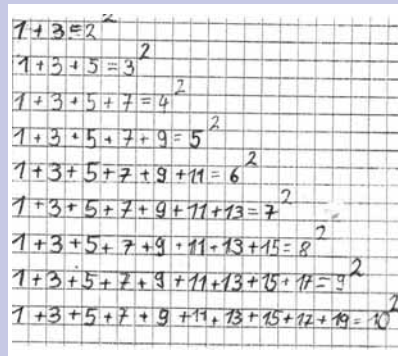 1 + 3 = 2²
1 + 3 + 5 = 3²
1 + 3 + 5 + 7 = 4²
1 + 3 + 5 + 7 + 9 = 5²
1 + 3 + 5 + 7 + 9 + 11 = 6²
1 + 3 + 5 + 7 + 9 + 11 + 13 = 7²
1 + 3 + 5 + 7 + 9 + 11 + 13 + 15 = 8²
1 + 3 + 5 + 7 + 9 + 11 + 13 + 15 + 17 = 9²
1 + 3 + 5 + 7 + 9 + 11 + 13 + 15 + 17 + 19 = 10²